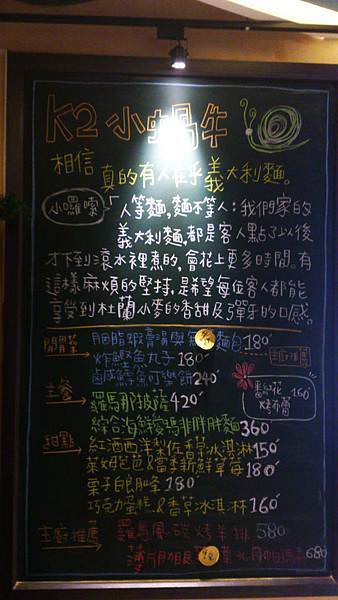 K2 小蝸牛
相信 真的有人在乎義大利麵。
小囉嗦
「人等麵,麵不等人:我們家的
義大利麵,都是客人點了以後
才下到滾水裡煮的,會花上更多時間。有
這樣麻煩的堅持,是希望每位客人都能
享受到杜蘭小麥的香甜及彈牙的口感。
開胃菜 胭脂蝦膏湯與 麵包180
炸鱈魚丸子180
主廚推薦
鹹鱈 可樂餅240
主餐 羅馬那披薩420
綜合海鮮 麵360
紅花 160
烤布蕾
甜點 紅酒西洋梨佐香草冰淇淋150
&當季新鮮草莓180
栗子白朗峰180
巧克力蛋糕&香草冰淇淋160
主廚推薦 羅馬風碳烤羊排580
680